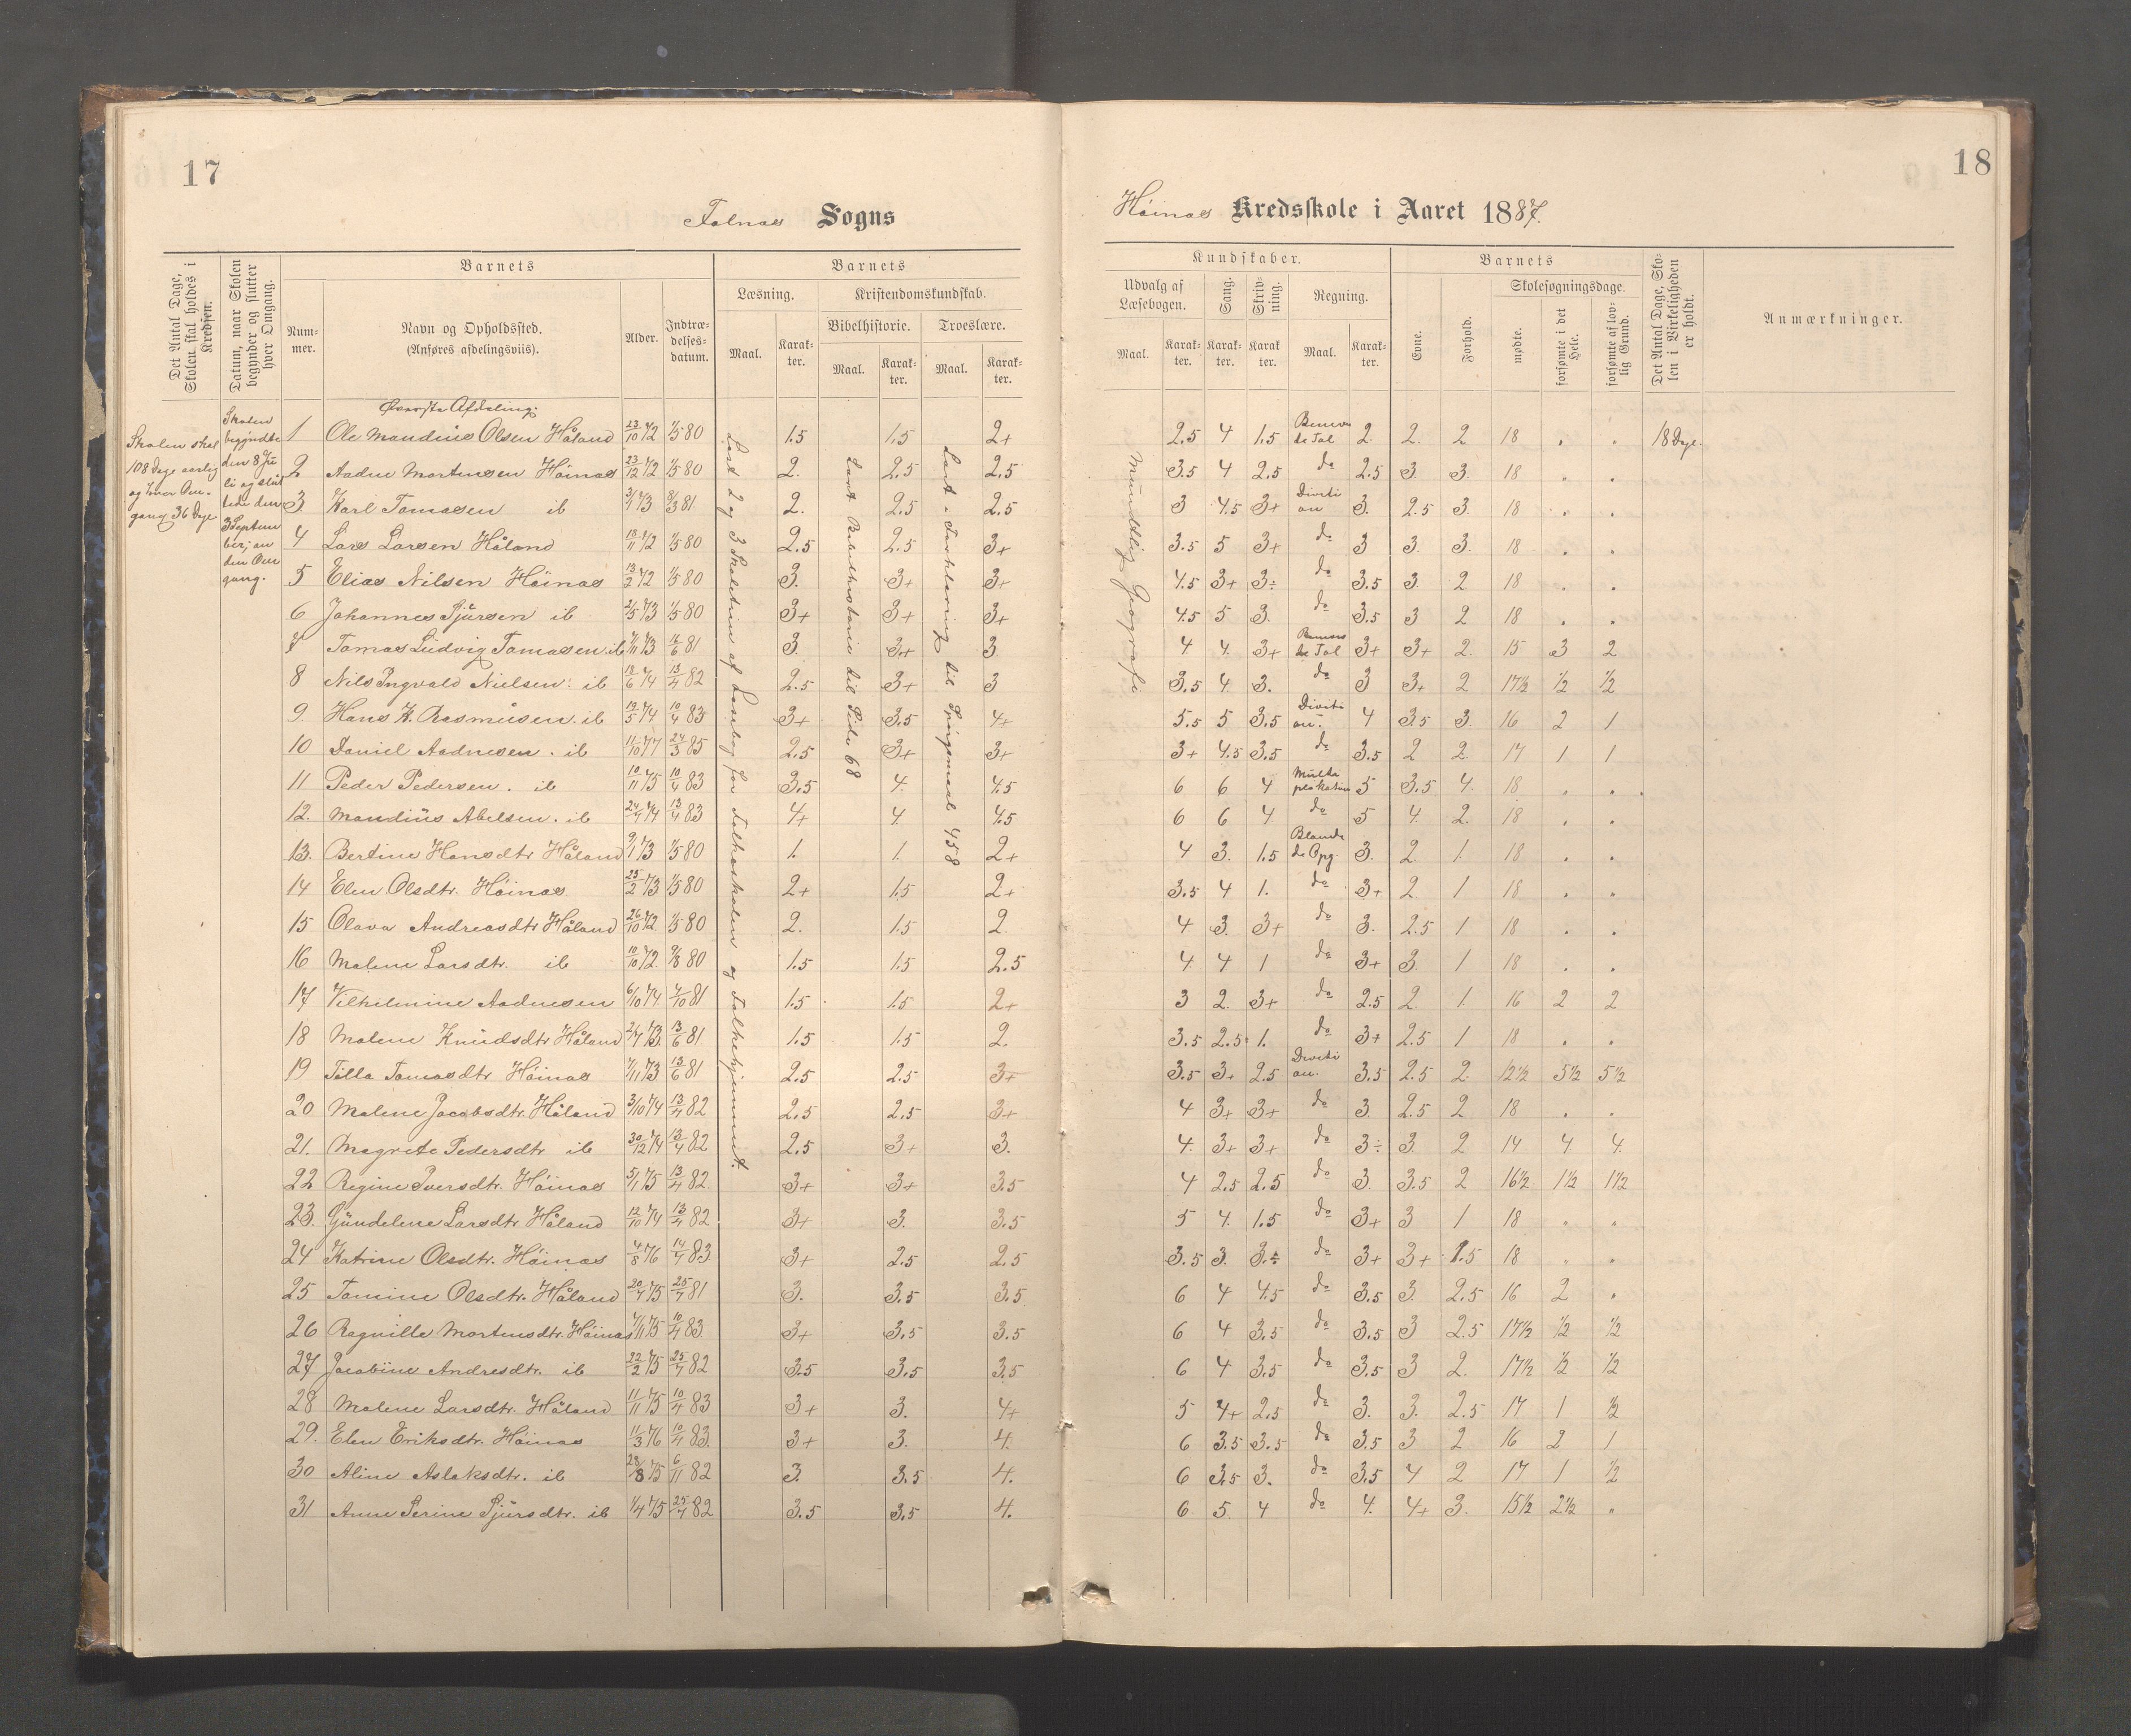 17
18
Falnæs Sogns
Höinæs Kredsskole i Aaret 1887.
Det Antal Dage, Skolen skal holdes i Kredsen.
Datum, naar Skolen begynder og slutter hver Omgang.
Barnets
Num-mer.
Navn og Opholdssted. (Anføres afdelingsviis).
Alder.
Indtræ-delses-datum.
Barnets
Læsning.
Maal.
Karak-ter.
Kristendomskundskab.
Bibelhistorie.
Maal.
Karak-ter.
Troeslære.
Maal.
Karak-ter.
Kundskaber.
Udvalg af Læsebogen.
Maal.
Karak-ter.
Sang.
Karak-ter.
Skriv-ning.
Karak-ter
Regning.
Maal.
Karak-ter.
Barnets
Evne.
Forhold.
Skolesøgningsdage.
mødte.
forsømte i det Hele.
forsømte af lov-lig Grund.
Det Antal Dage, Sko-len i Virkeligheden er holdt.
Anmærkninger.
Skolen skal
108 Dage aarlig
og hver Om-
gang 36 Dage
Skolen
begyndte
den 8 Ju
li og slut
tede den
3 Septem
ber, an
den Om
gang.
Øverste Afdeling:
Læst 2 og 3 Skoletrin af Læsebog for Folkeskolen og Folkehjemmet.
Læst Bibelhistorie til Side 68
Læst i Forklaring til Spørgsmaal 458
Mundtlig Geografi
1 Ole Mandius Olsen Håland 23/10 72 1/5 80 1.5 1.5 2+ 2.5 4 1.5 Benævn de Tal 2 2. 2 18 . . 18 Dage.
2 Aadne Mortensen Höinæs 23/12 72 1/5 80 2. 2.5 2.5 3.5 4 2.5 do 2.5 3. 3. 18 . .
3 Karl Tomasen ib 3/4 73 8/3 81 2. 2.5 2.5 3 4.5 3+ Divisi on 3. 2.5 3. 18 . .
4 Lars Larsen Håland 18/11 72 1/5 80 2.5 2.5 3+ 3.5 5 3+ do 3 3. 3. 18 . .
5 Elias Nilsen Höinæs 13/2 72 1/5 80 3. 3+ 3+ 4.5 3+ 3÷ do 3.5 3. 2 18 . .
6 Johannes Sjursen ib 2/5 73 1/5 80 3+ 3+ 3+ 4.5 5 3. do 3.5 3 2 18 . .
7 Tomas Ludvig Tomasen ib 7/11 73 13/6 81 3. 3+ 3. 4. 4. 3+ Benævn de Tal 3+ 3+ 2. 15 3 2
8 Nils Ingvald Nielsen. ib 18/6 74 13/4 82 2.5 3+ 3 3.5 4 3. do 3 3+ 2 17½ ½ ½
9. Hans K. Rasmusen. ib 19/5 74 10/4 83 3+ 3.5 4+ 5.5 5 3.5 Divisi on. 4 3.5 3. 16 2 1
10 Daniel Aadnesen. ib 11/10 77 24/3 85 2.5 3+ 3+ 3+ 4.5 3.5 do 3.5 2 2. 17 1 1
11 Peder Pedersen. ib 10/11 75 10/4 83 3.5 4. 4.5 6 6 4 Multi plikation 5 3.5 4. 18 . .
12. Mandius Abelsen. ib 24/4 74 13/4 83 4+ 4 4.5 6 6 4. do 5 4. 2. 18 . .
13. Bertine Hansdtr Håland 9/1 73 1/5 80 1. 1. 2+ 4 3. 1.5 Blande de Opg. 3. 2. 1. 18 . .
14 Elen Olsdtr. Höinæs 25/2 73 1/5 80 2+ 1.5 2+ 3.5 4 1. do 3+ 2. 1 18 . .
15 Olava Andreasdtr Håland 26/10 72 1/5 80 2. 1.5 2. 4 3. 3+ do 3. 2.5 1 18 . .
16 Malene Larsdtr. ib 10/10 72 9/8 80 1.5 1.5 2.5 4. 4 1 do 3+ 3. 1 18 . .
17 Vilhelmine Aadnesen 6/10 74 7/10 81 1.5 1.5 2+ 3 2. 3+ do 2.5 2. 1. 16 2 2
18 Malene Knudsdtr Håland 2/7 73 13/6 81 1.5 1.5 2. 3.5 2.5 1. do 3+ 2.5 1 18 . .
19 Tilla Tomasdtr Höinæs 7/11 73 13/6 81 2.5 2.5 3+ 3.5 3+ 2.5 Divisi on. 3.5 2.5 2. 12½ 5½ 5½
20 Malene Jacobsdtr. Håland 3/10 74 13/4 82 2.5 2.5 3+ 4 3+ 3+ do 3. 2.5 2 18 . .
21. Magrete Pedersdtr ib 30/12 74 13/4 82 2.5 3+ 3. 4. 3+ 3+ do 3÷ 3. 2 14 4. 4.
22 Regine Iversdtr. Höinæs 5/1 75 13/4 82 3+ 3+ 3.5 4 2.5 2.5 do 3. 3.5 2 16½ 1½ 1½
23. Gundelene Larsdtr Håland 12/10 74 13/4 82 3+ 3. 3.5 5 4. 1.5 do 3+ 3 1 18 " "
24 Katrine Olsdtr. Höinæs 4/8 76 14/7 83 3+ 2.5 2.5 3.5 3. 3.÷ do 3+ 3+ 1.5 18 " "
25 Tomine Olsdtr. Håland 20/7 75 25/7 81 3. 3.5 3.5 6 4 4.5 do 3.5 3. 2.5 16 2 .
26 Ragnille Mortensdtr. Höinæs 4/11 75 10/4 83 3+ 3.5 3.5 6 4 3.5 do 3.5 3 2.5 17½ ½ ½
27 Jacobine Andresdtr. ib 22/2 75 25/7 82 3.5 3.5 3.5 6 4 3.5 do 3.5 3 2. 17½ ½ ½
28 Malene Larsdtr. Håland 11/11 75 10/4 83 3+ 3. 4+ 5 4+ 2.5 do 3. 3. 2.5 17 1 ½
29. Elen Eriksdtr. Höinæs 11/3 76 10/4 83 3+ 3. 4. 6 3.5 3.5 do 3.5 3 2 16 2 1
30 Aline Aslaksdtr. ib 28/8 75 6/11 82 3. 3.5 4. 6 3.5 3. do 3.5 4 2 17 1 ½
31 Anne Serine Sjursdtr. ib 1/4 75 25/7 82 3.5 3.5 4. 6 5. 4 do 4. 4+ 3. 15½ 2½ "